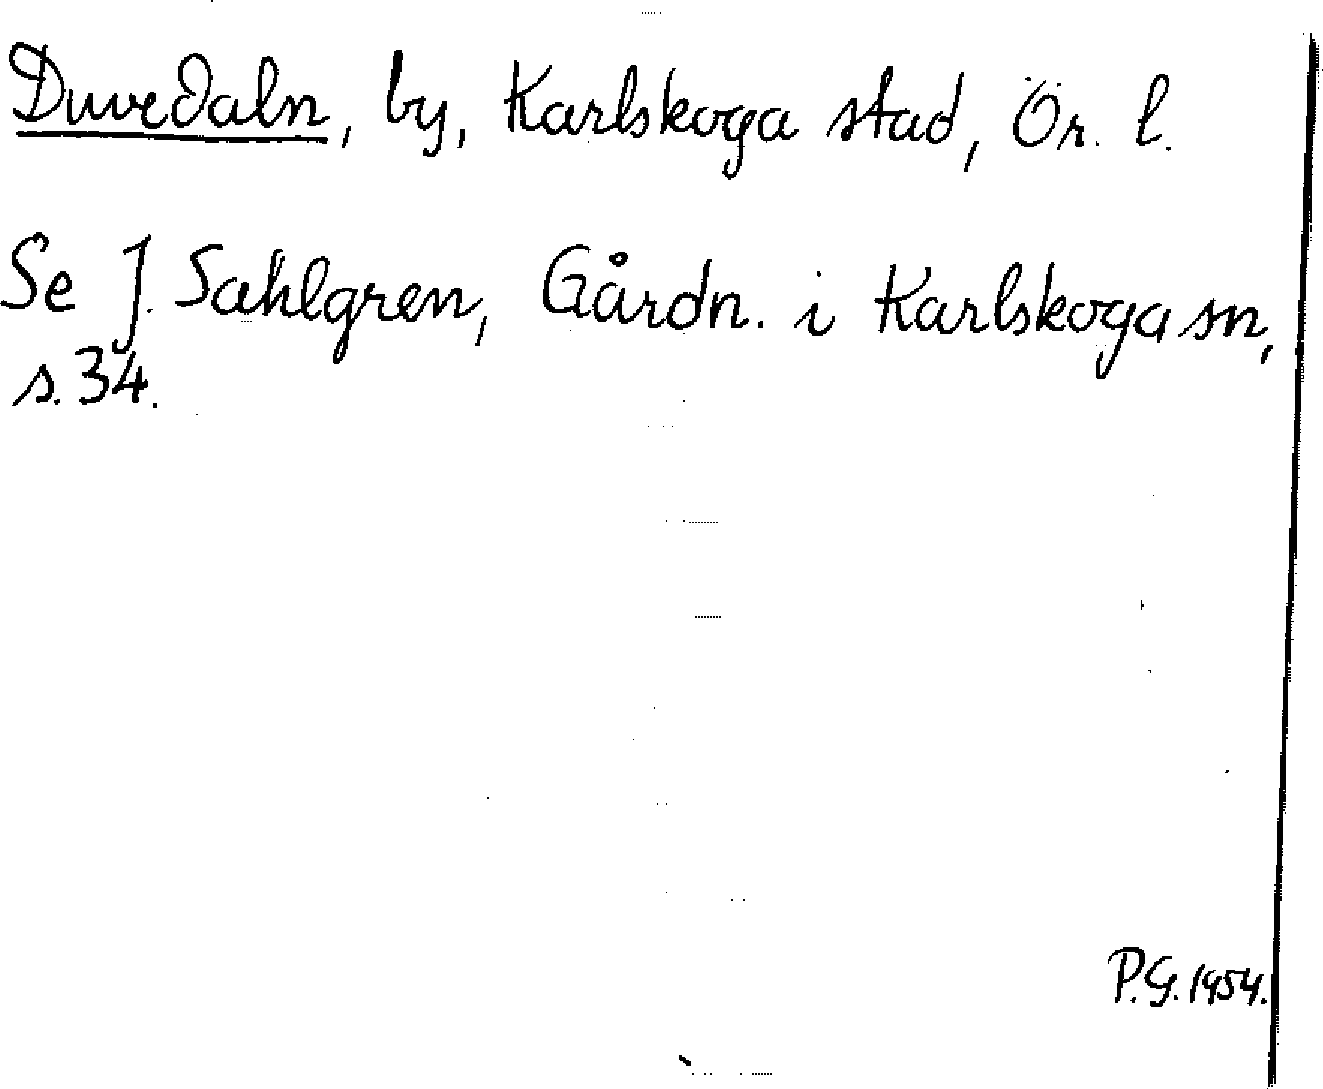 Duvedaln, by, Karlskoga stad, Ör. l.
Se J. Sahlgren, Gårdn. i Karlskoga sn,
s. 34.
P.G. 1954.